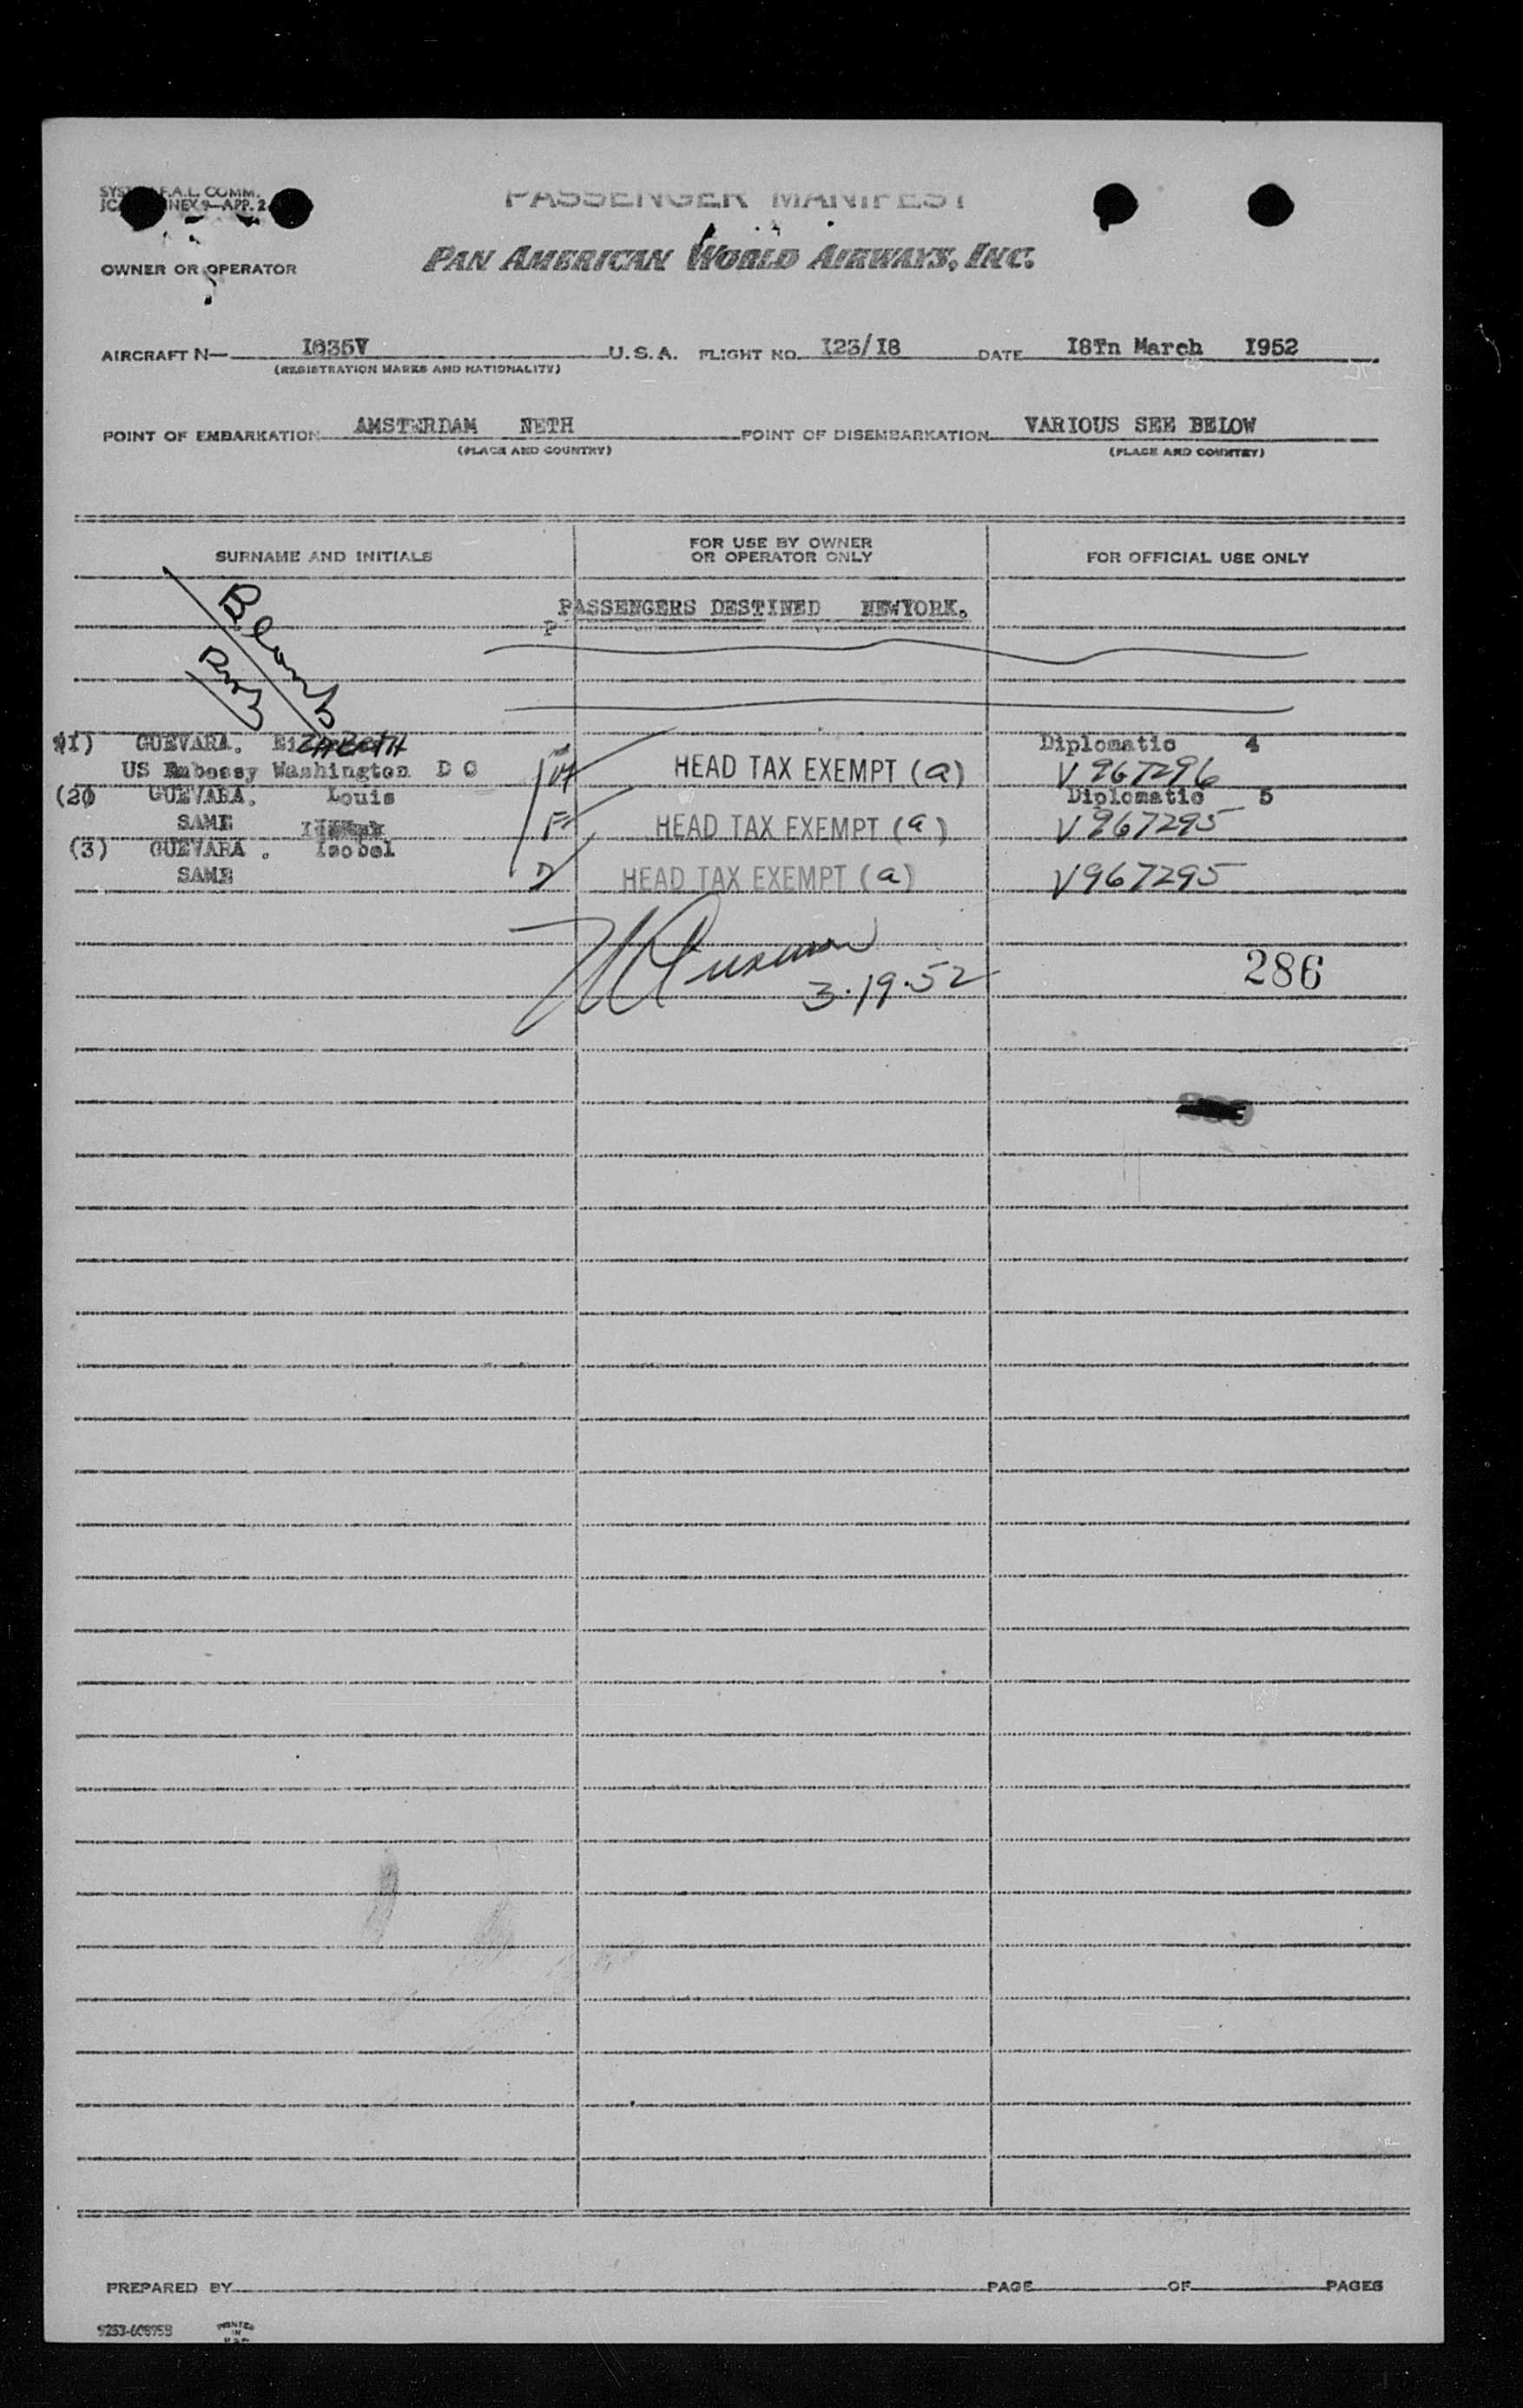 F.A.L. COMM.
NEX 9—APP. 2
PASSENGER MANIFEST
PAN AMERICAN WORLD AIRWAYS, INC.
OWNER OR OPERATOR
AIRCRAFT N— I035V U.S.A. FLIGHT NO. I23/I8 DATE I8Tn March I952
(REGISTRATION MARKS AND NATIONALITY)
POINT OF EMBARKATION AMSTERDAM NETH POINT OF DISEMBARKATION VARIOUS SEE BELOW
(PLACE AND COUNTRY) (PLACE AND COUNTRY)
SURNAME AND INITIALS FOR USE BY OWNER OR OPERATOR ONLY FOR OFFICIAL USE ONLY
PASSENGERS DESTINED NEWYORK.
P
(1) GUEVARA. ElizABetH Diplomatic 4
US Embassy Washington D C M HEAD TAX EXEMPT (a) V 967296
(2) GUEVARA. Louis Diplomatic 5
SAME F HEAD TAX EXEMPT (a) V967295
(3) GUEVARA . Isobel
SAME D HEAD TAX EXEMPT (a) V967295
3·19·52
286
PREPARED BY PAGE OF PAGES
9253-608958 PRINTED IN U.S.A.